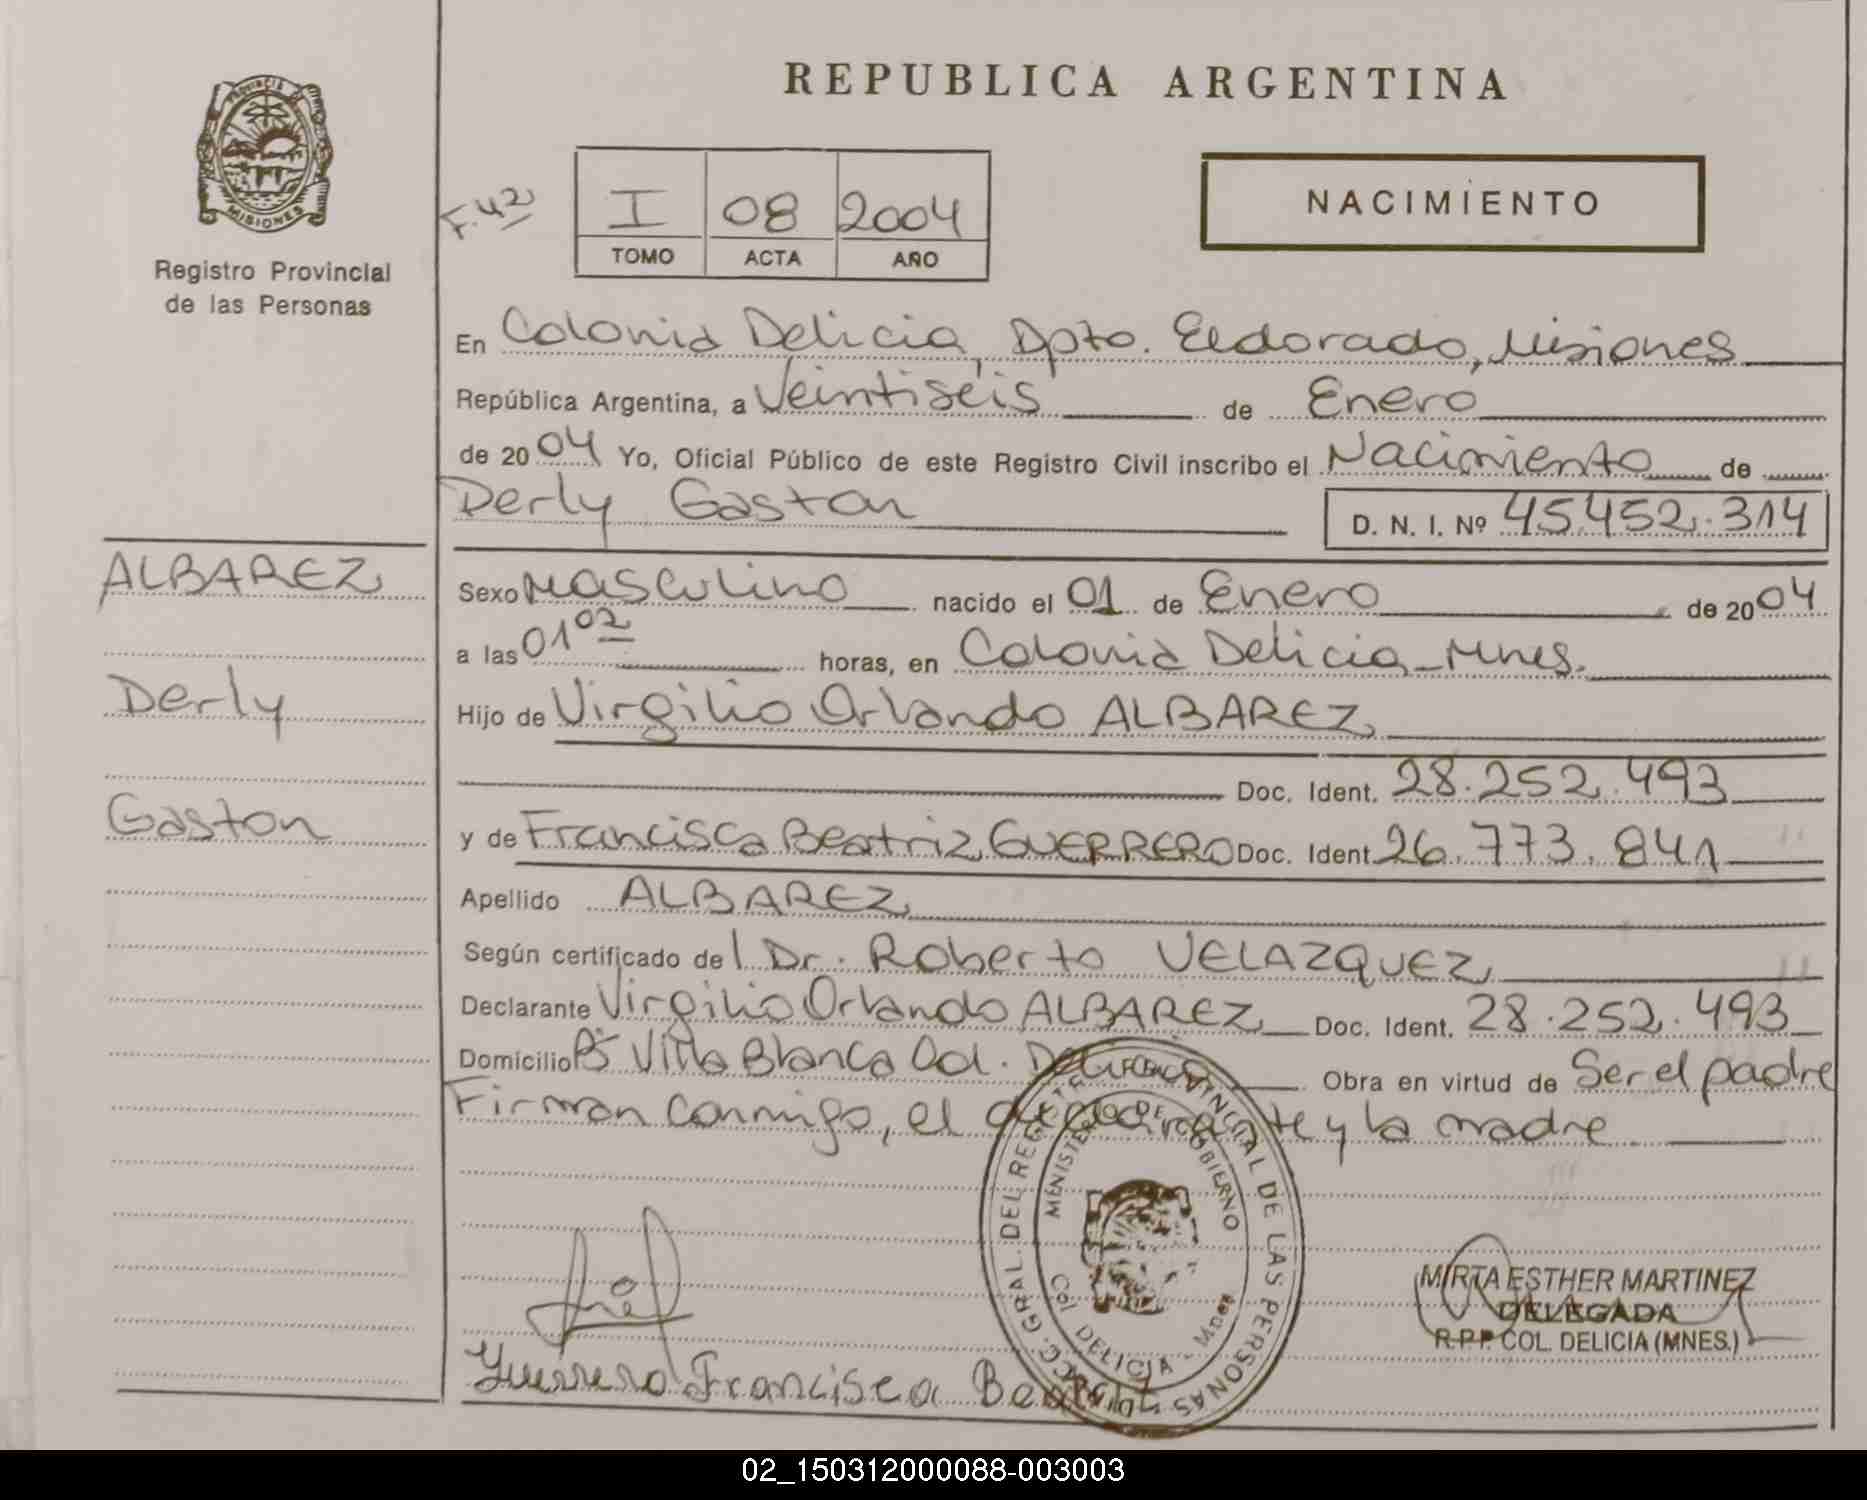 REPUBLICA ARGENTINA
PROVINCIA DE
MISIONES
Registro Provincial
de las Personas
F. 42
I 08 2004
TOMO ACTA AÑO
NACIMIENTO
En Colonia Delicia, Dpto. Eldorado, Misiones
República Argentina, a Veintiseis de Enero
de 2004 Yo, Oficial Público de este Registro Civil inscribo el Nacimiento de
Derly Gaston D. N. I. Nº 45.452.314
ALBAREZ
Derly
Gaston
Sexo Masculino nacido el 01 de Enero de 2004
a las 01 02 horas, en Colonia Delicia - Mnes.
Hijo de Virgilio Orlando ALBAREZ
Doc. Ident. 28.252.493
y de Francisca Beatriz GUERRERO Doc. Ident. 26.773.841
Apellido ALBAREZ
Según certificado del Dr. Roberto VELAZQUEZ
Declarante Virgilio Orlando ALBAREZ Doc. Ident. 28.252.493
Domicilio Bº Villa Blanca Col. Delicia Obra en virtud de Ser el padre
Firman conmigo, el declarante y la madre
GRAL. DEL REGISTRO PROVINCIAL DE LAS PERSONAS
MINISTERIO DE GOBIERNO
Col DELICIA - Mnes
MIRTA ESTHER MARTINEZ
DELEGADA
R.P.P. COL. DELICIA (MNES.)
Guerrero Francisca Beatriz
02_150312000088-003003